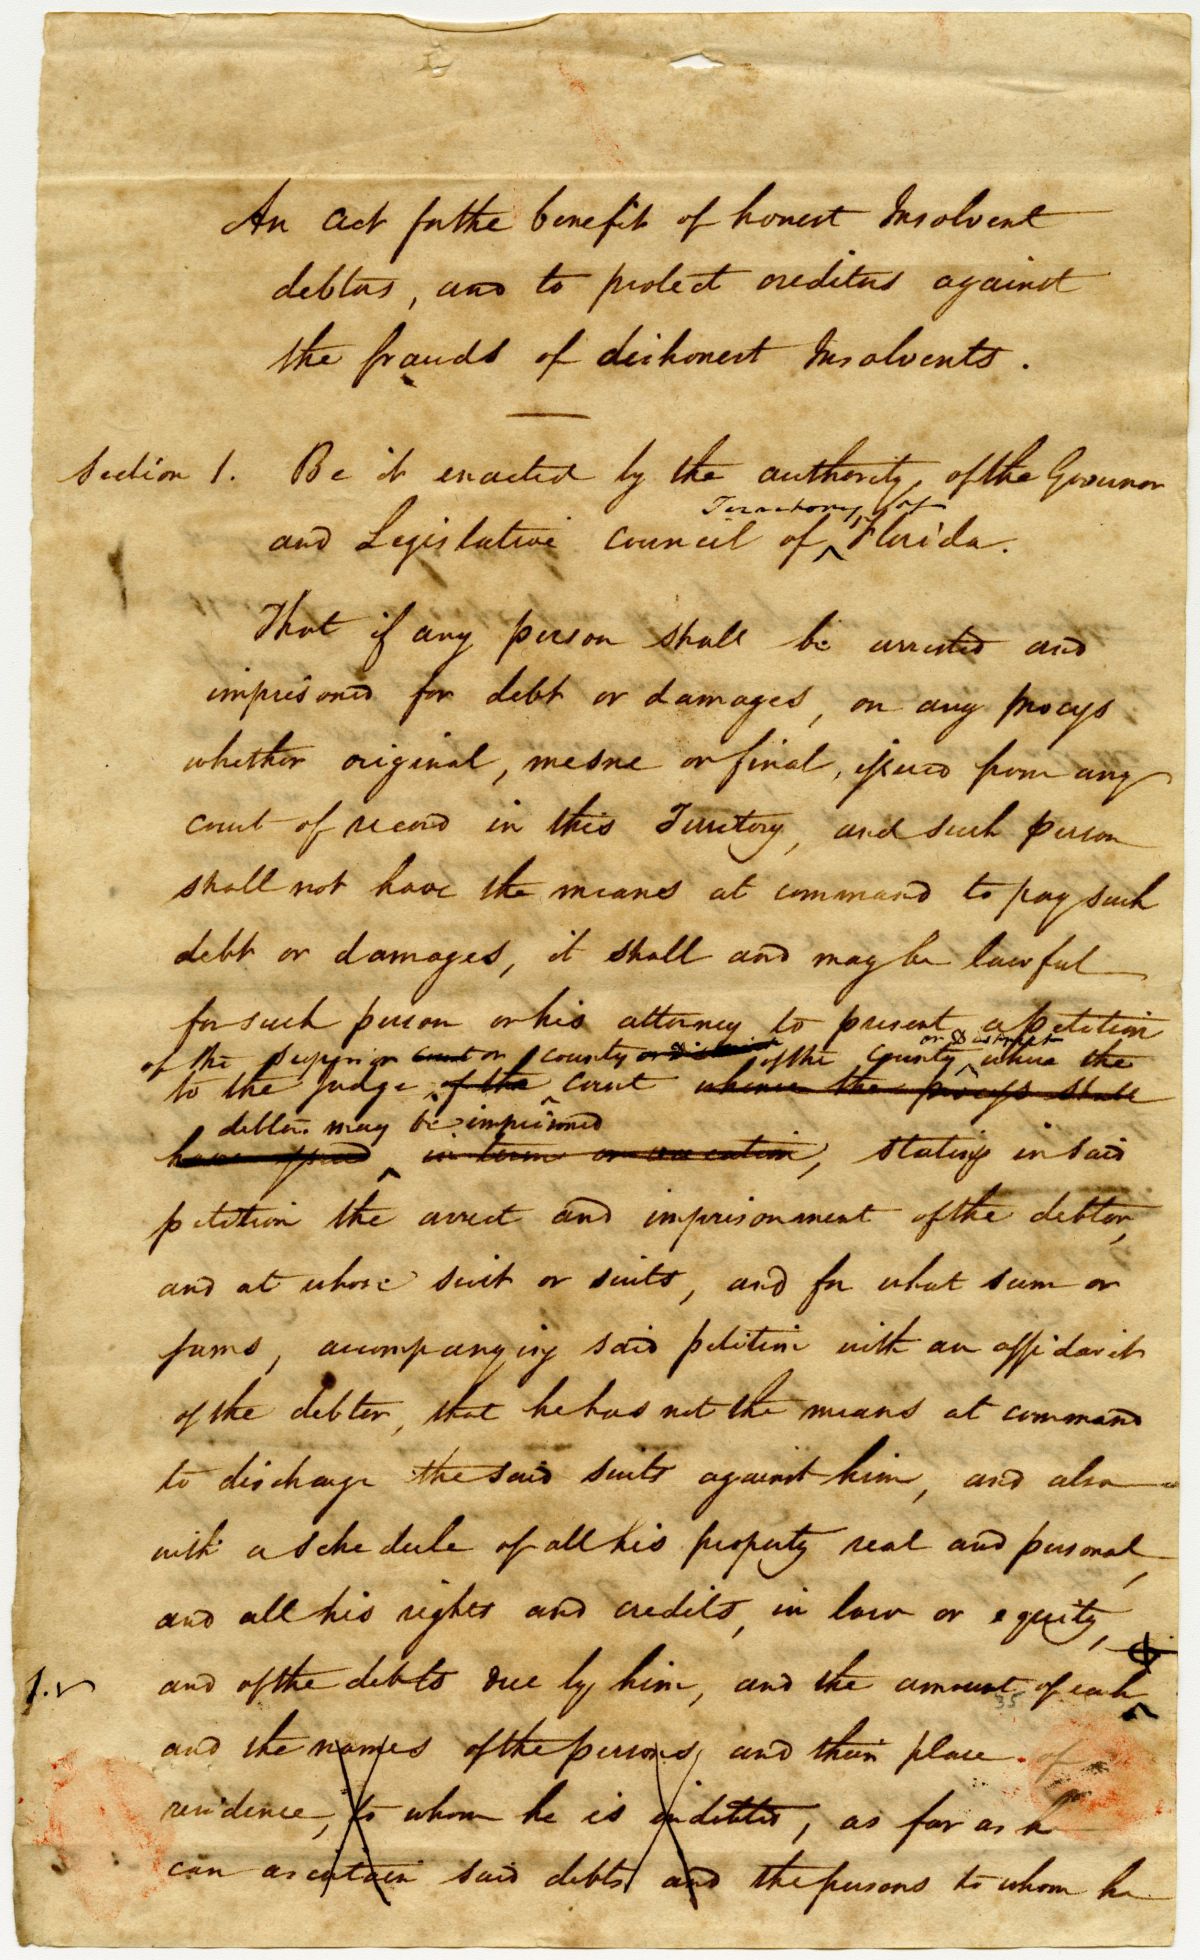 An act for the benefit of honest Insolvent
debtors, and to protect creditors against
the frauds of dishonest Insolvents.
Section 1. Be it enacted by the authority of the Governor
Territory of
and Legislative council of ^ Florida.
That if any person shall be arrested and
imprisoned for debt or damages, on any process
whether original, mesne or final, issued from any
court of record in this Territory, and such person
shall not have the means at command to pay such
debt or damages, it shall and may be lawful
for such person or his attorney to present a petition
or District
of the Superior court or county or District of the County ^ where the
to the judge of the ^ court whence the process shall
debtor may be imprisoned
have issued ^ in term or vacation, stating in said
petition the arrest and imprisonment of the debtor,
and at whose suit or suits, and for what sum or
sums, accompanying said petition with an affidavit
of the debtor, that he has not the means at command
to discharge the said suits against him, and also
with a schedule of all his property real and personal,
and all his rights and credits, in law or equity,
1. and of the debts due by him, and the amount of each ^
35
and the names of the persons, and their place of
residence, to whom he is indebted, as far as he
can ascertain said debts and the persons to whom he